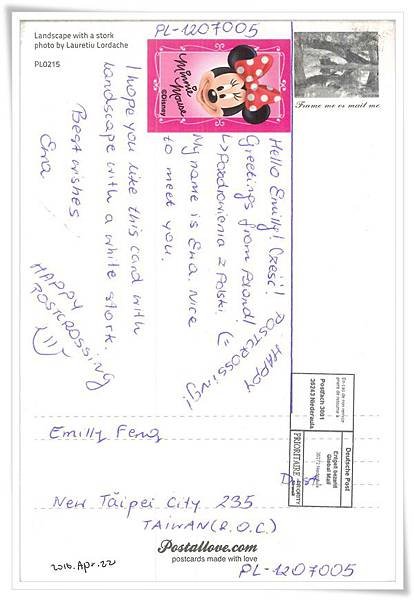 PL-1207005
Landscape with a stork
photo by Lauretiu Lordache
PL0215
Minnie
Mouse
©Disney
Frame me or mail me
Hello Emilly! Cześć!
Greetings from Poland!
↳Pozdrowienia z Polski (=
My name is Ewa. Nice
to meet you.
I hope you like this card with
landscape with a white stork.
Best wishes
Ewa
HAPPY
POSTCROSSING!
HAPPY
POSTCROSSING
En cas de non remise
prière de retourner à
Postfach 3001
36243 Niederaula
Deutsche Post
Entgelt bezahlt
Global Mail
36272 Niederaula
PRIORITAIRE
PRIORITY
Emilly Feng
New Taipei City 235
TAIWAN (R.O.C)
Postallove.com
postcards made with love
2016.Apr.22
PL-1207005